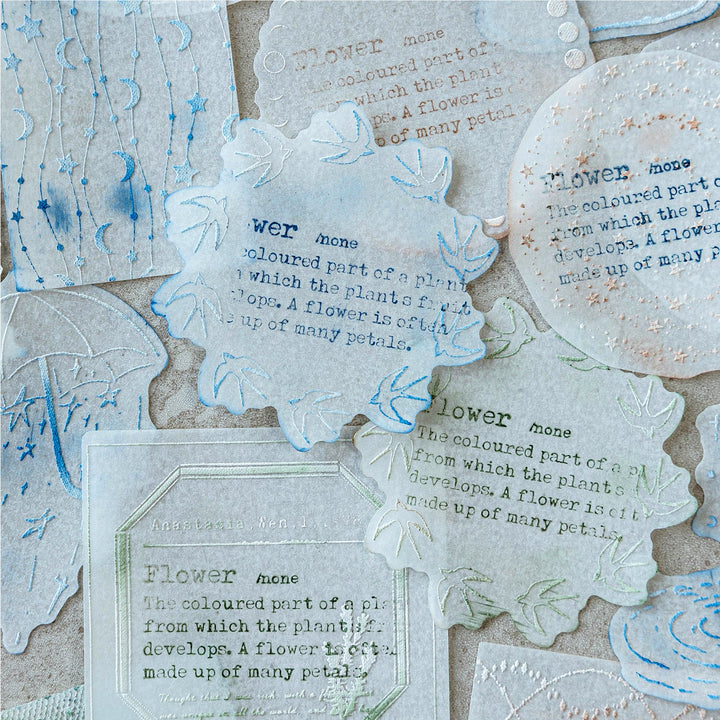 Flower /none
The coloured part of a
from which the plant
of many petals.
Flower /none
The coloured part of
from which the
develops. A flower
made up of many
wer /none
coloured part of a plant
which the plants fruit
lops. A flower is often
e up of many petals.
Flower /none
The coloured part of a pl
from which the plants
develops. A flower is oft
made up of many petals.
Anastasia,
Flower /none
The coloured part of a pla
from which the plants f
develops. A flower is ofte
made up of many petals.
Thought that I was rich, with a